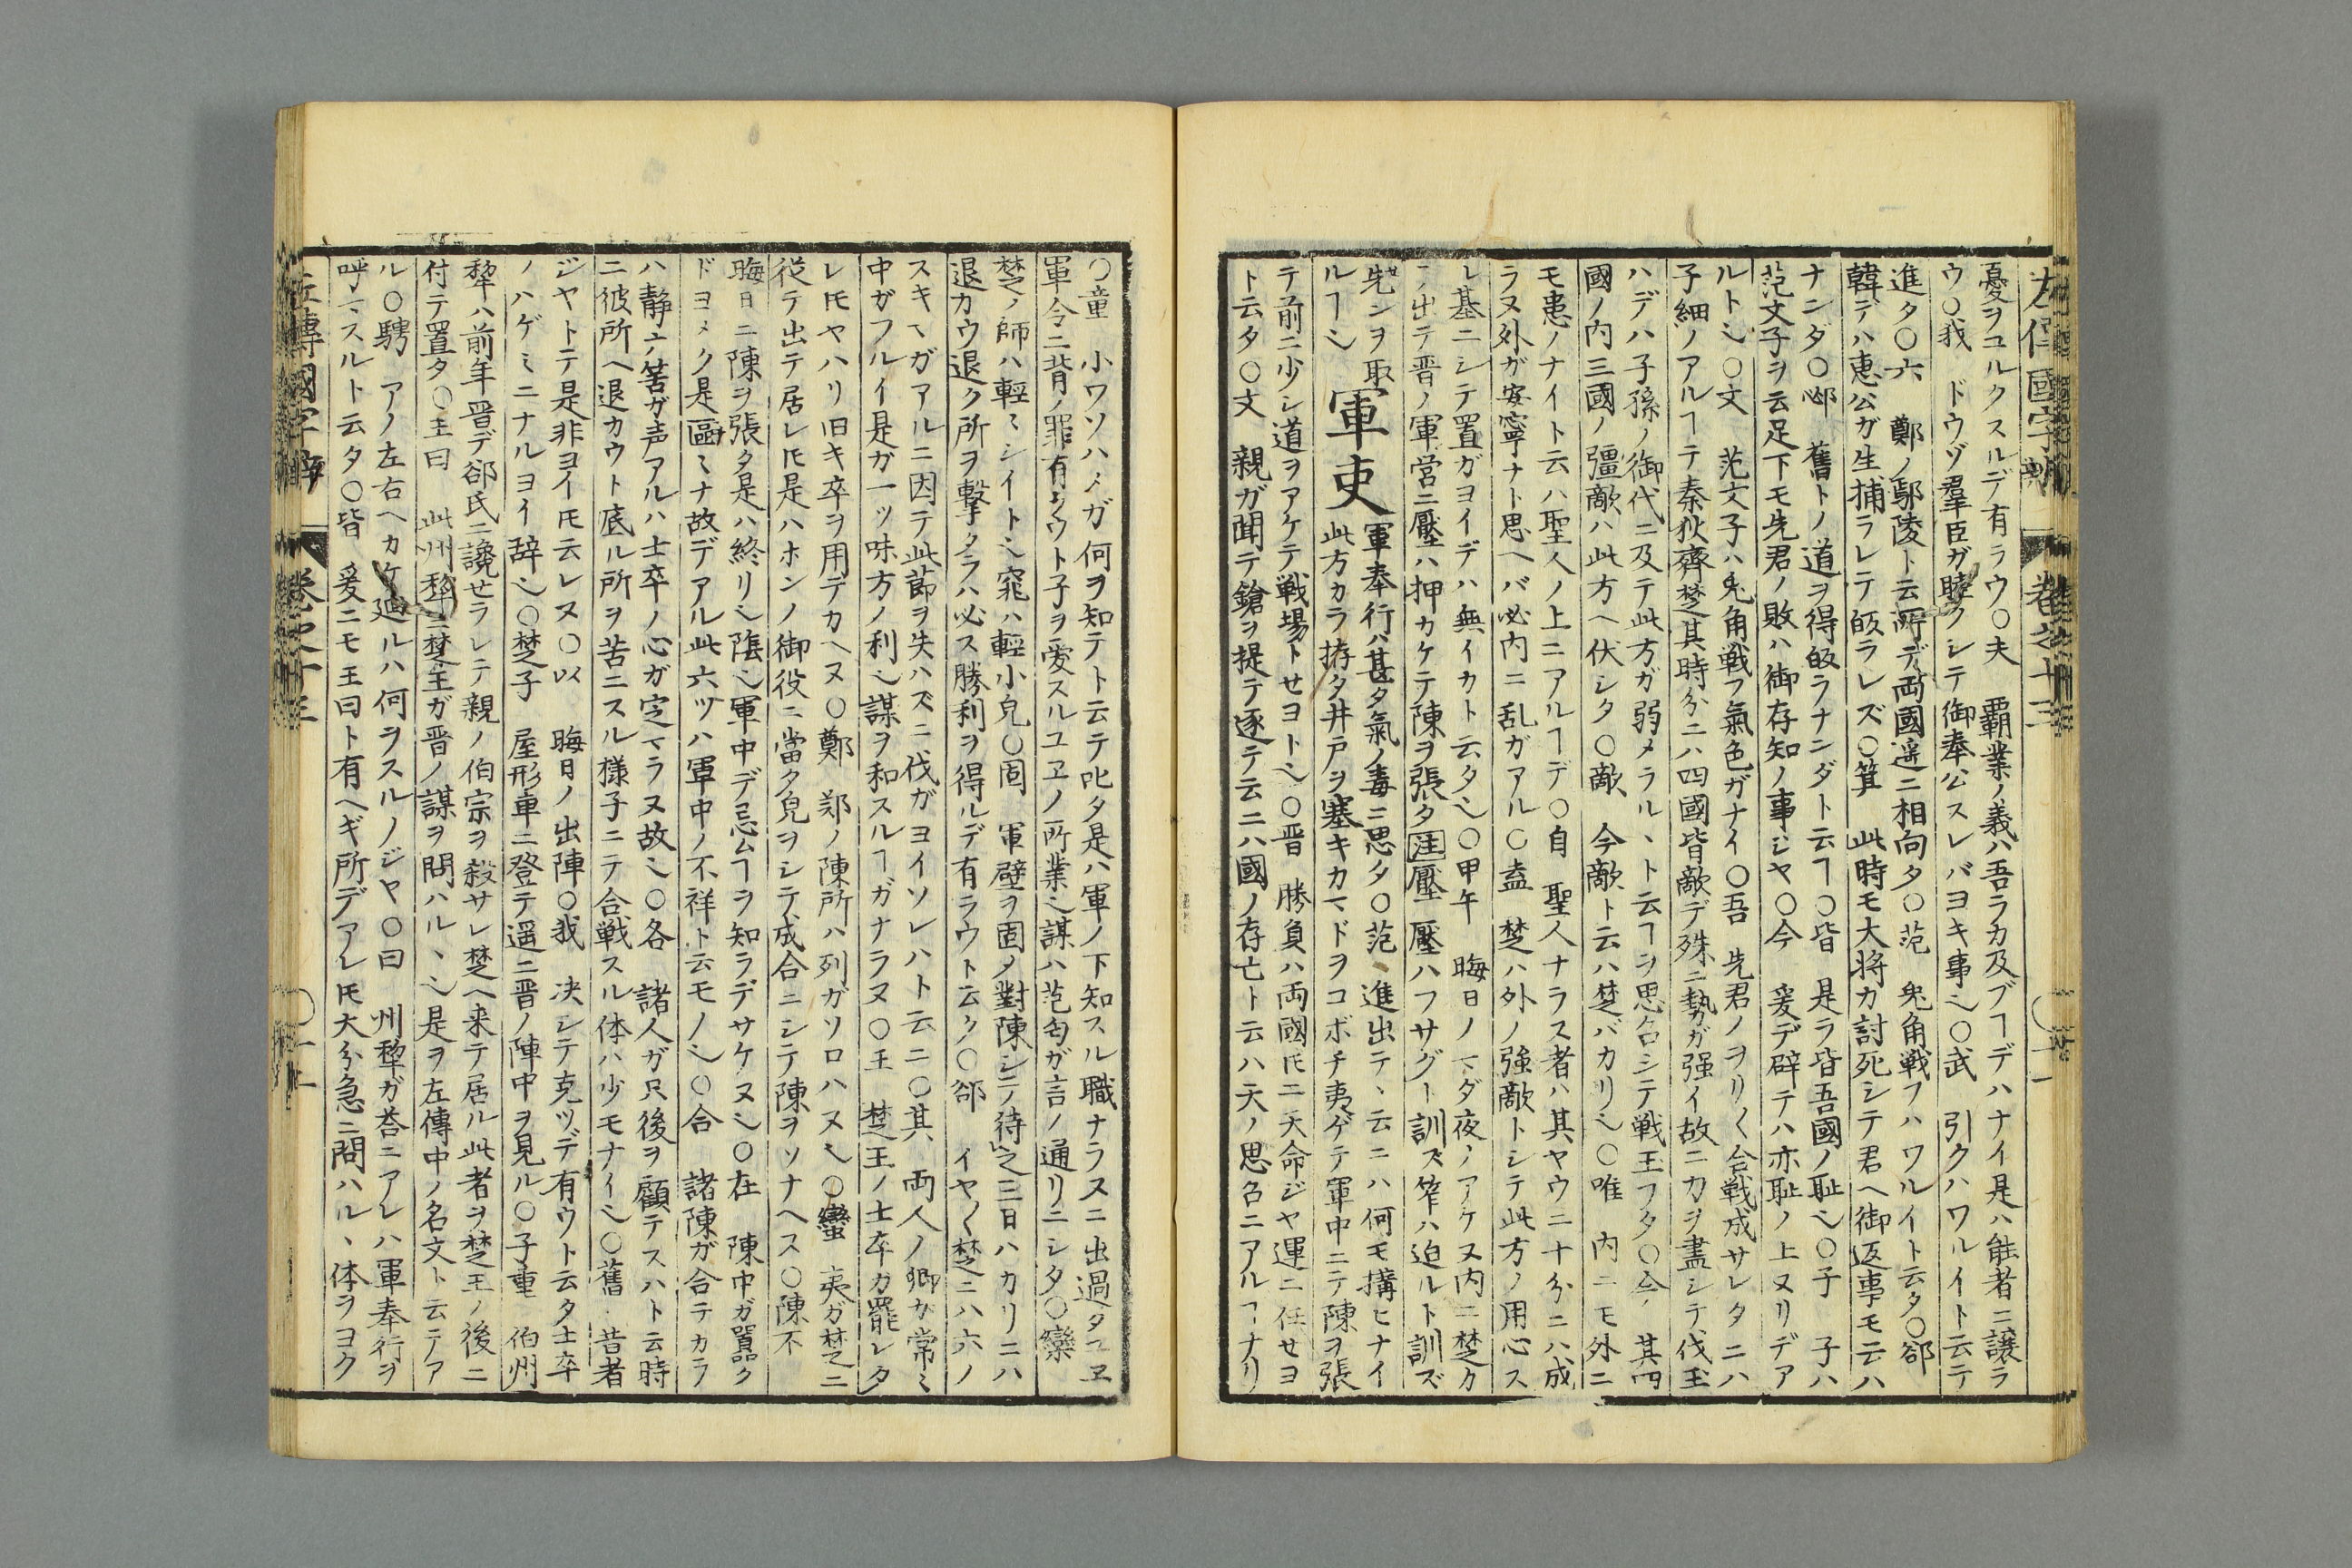 左傳國字辯 卷之十三
憂ヲユルクスルデ有ラウ〇夫 覇業ノ義ハ吾ラカ及ブヿデハナイ是ハ能者ニ譲ラ
ウ〇我 ドウゾ羣臣ガ睦クシテ御奉公スレバヨキ事也〇武 引クハワルイト云テ
進タ〇六 鄭ノ鄢陵ト云所デ両國遥ニ相向タ〇范 兔角戦フハワルイト云タ〇郤
韓デハ惠公ガ生捕ラレテ皈ラレズ〇箕 此時モ大将カ討死シテ君ヘ御返事モ云ハ
ナンダ〇邲 舊トノ道ヲ得皈ラナンダト云ヿ〇皆 是ラ皆吾國ノ耻也〇子 子ハ
范文子ヲ云足下モ先君ノ敗ハ御存知ノ事ジヤ〇今 爰デ辟テハ亦耻ノ上ヌリデア
ルト也〇文 范文子ハ兔角戦フ氣色ガナイ〇吾 先君ノヲリ〱合戦成サレタニハ
子細ノアルヿテ秦狄齊楚其時分ニハ四國皆敵デ殊ニ勢ガ强イ故ニ力ヲ盡シテ伐玉
ハデハ子孫ノ御代ニ及テ此方ガ弱メラルヽト云ヿヲ思召シテ戦玉フタ〇今 其四
國ノ内三國ノ彊敵ハ此方ヘ伏シタ〇敵 今敵ト云ハ楚バカリ也〇唯 内ニモ外ニ
モ患ノナイト云ハ聖人ノ上ニアルヿデ〇自 聖人ナラス者ハ其ヤウニ十分ニハ成
ラヌ外ガ安寧ナト思ヘバ必内ニ乱ガアル〇盍 楚ハ外ノ強敵トシテ此方ノ用心ス
ル基ニシテ置ガヨイデハ無イカト云タ也〇甲午 晦日ノマダ夜ノアケヌ内ニ楚カ
ラ出テ晋ノ軍営ニ壓ハ押カケテ陳ヲ張タ注壓 壓ハフサグト訓ズ笮ハ迫ルト訓ズ
先ンヲ取ルヿ也 軍吏 軍奉行ハ甚タ氣ノ毒ニ思タ〇范 進出テヽ云ニハ何モ搆ヒナイ
此方カラ拵タ井戸ヲ塞キカマドヲコボチ夷ゲテ軍中ニテ陳ヲ張
テ前ニ少シ道ヲアケテ戦場トセヨト也〇晋 勝負ハ両國𪜈ニ天命ジヤ運ニ任せヨ
ト云タ〇文 親ガ聞デ鎗ヲ提テ逐テ云ニハ國ノ存亡ト云ハ天ノ思召ニアルヿナリ
〇童 小ワソハメガ何ヲ知テト云テ叱タ是ハ軍ノ下知スル職ナラスニ出過タユヱ
軍令ニ背ノ罪有ラウト子ヲ愛スルユヱノ所業也謀ハ范匄ガ言ノ通リニシタ〇欒
楚ノ師ハ輕〻シイト也窕ハ輕小皃〇固 軍壁ヲ固メ對陳シテ待之三日ハカリニハ
退カウ退ク所ヲ擊タラハ必ス勝利ヲ得ルデ有ラウト云タ〇郤 イヤ〱楚ニハ六ノ
スキマガアルニ因テ此節ヲ失ハズニ伐ガヨイソレハト云ニ〇其 両人ノ卿カ常〻
中ガフルイ是ガ一ッ味方ノ利也謀ヲ和スルヿガナラヌ〇王 楚王ノ士卒カ罷レタ
レ𪜈ヤハリ旧キ卒ヲ用テカヘヌ〇鄭 郑ノ陳所ハ列ガソロハヌ也〇蠻 夷ガ楚ニ
從テ出テ居レ𪜈是ハホンノ御役ニ當タ皃ヲシテ成合ニシテ陳ヲソナヘス〇陳不
晦日ニ陳ヲ張タ是ハ終リ也隂也軍中デ忌ムヿヲ知ラデサケヌ也〇在 陳中ガ嚣ク
ドヨメク是區〻ナ故デアル此六ツハ軍中ノ不祥ト云モノ也〇合 諸陳ガ合テカラ
ハ静ナ筈ガ声アルハ士卒ノ心ガ定マラヌ故也〇各 諸人ガ只後ヲ顧テスハト云時
ニ彼所ヘ退カウト底ル所ヲ苦ニスル様子ニテ合戦スル体ハ少モナイ也〇舊 昔者
ジヤトテ是非ヨイ𪜈云レヌ〇以 晦日ノ出陣〇我 決シテ克ツデ有ウト云タ士卒
ノハゲミニナルヨイ辞也〇楚子 屋形車ニ登テ遥ニ晋ノ陣中ヲ見ル〇子重 伯州
犂ハ前年晋デ郤氏ニ讒せラレテ親ノ伯宗ヲ殺サレ楚ヘ来テ居ル此者ヲ楚王ノ後ニ
付テ置タ〇王曰 此州犂ニ楚王ガ晋ノ謀ヲ問ハルヽ也是ヲ左傳中ノ名文ト云テア
ル〇騁 アノ左右ヘカケ廻ルハ何ヲスルノジヤ〇曰 州犂ガ荅ニアレハ軍奉行ヲ
呼マスルト云タ〇皆 爰ニモ王曰ト有ヘギ所デアレ𪜈大分急ニ問ハルヽ体ヲヨク
左傳國字辯 卷之十三